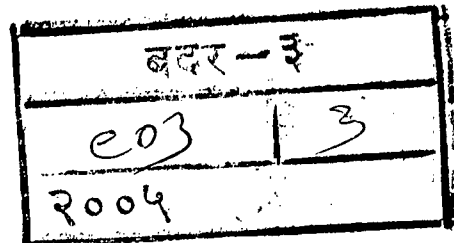 बदर - ३
९०३ | ३
२००५